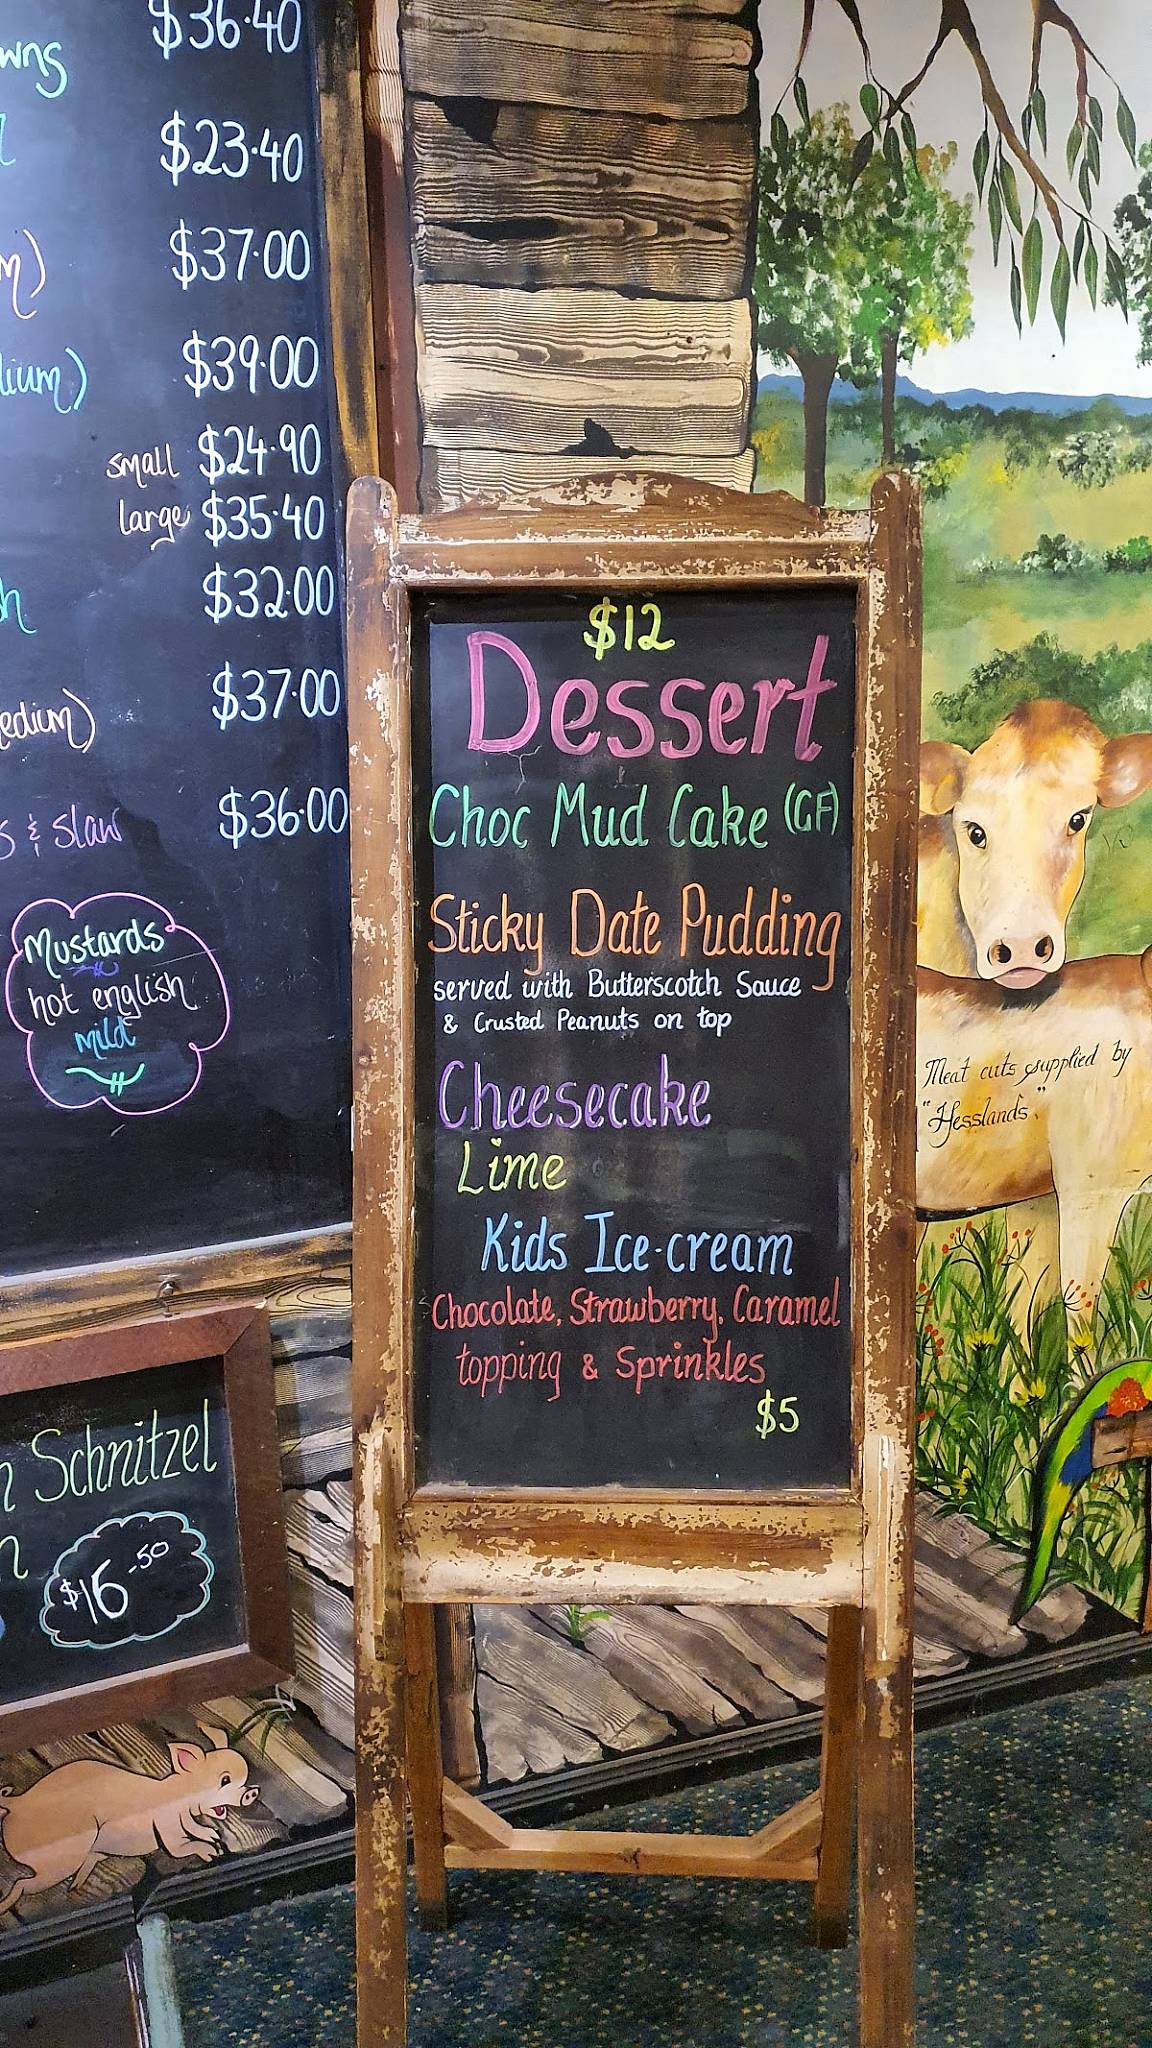 $36.40
$23.40
$37.00
$39.00
small $24.90
large $35.40
$32.00
$37.00
$36.00
& slaw
Mustards
hot english
mild
Schnitzel
$16.50
$12
Dessert
Choc Mud Cake (GF)
Sticky Date Pudding
served with Butterscotch Sauce
& Crusted Peanuts on top
Cheesecake
Lime
Kids Ice-cream
Chocolate, Strawberry, Caramel
topping & Sprinkles
$5
Meat cuts supplied by
"Hesslands"